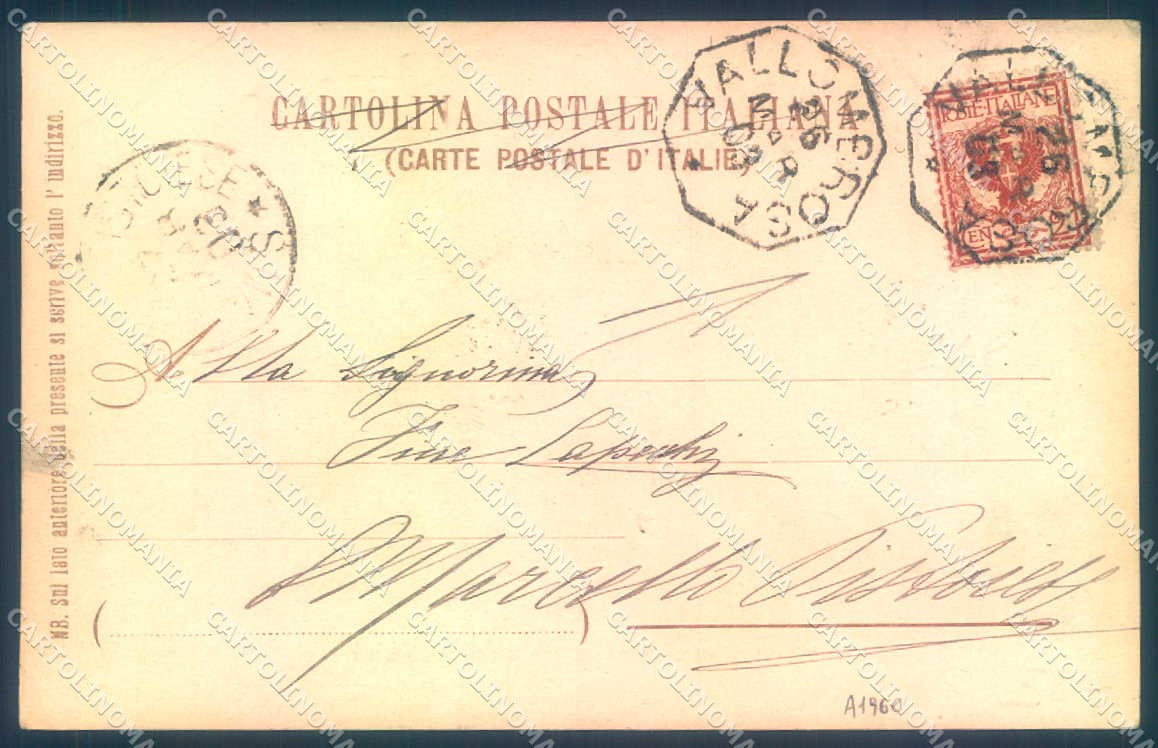 CARTOLINA POSTALE ITALIANA
(CARTE POSTALE D'ITALIE)
VALLOMBROSA
26
MAR
03
POSTE ITALIANE
VALLOMBROSA
26
MAR
03
NB. Sul lato anteriore della presente si scrive soltanto l'indirizzo.
Alla Signorina
Marcello Pistoiese
A1960
CARTOLINOMANIA